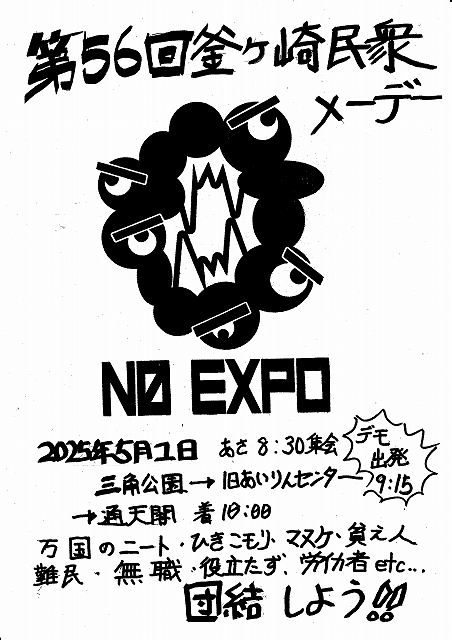 第56回釜ヶ崎民衆
メーデー
NO EXPO
2025年5月1日 あさ8:30集会
デモ
出発
9:15
三角公園→旧あいりんセンター
→通天閣 着10:00
万国のニート・ひきこモリ・マヌケ・貧乏人
難民・無職・役立たず、労イカ者etc...
団結しよう!!